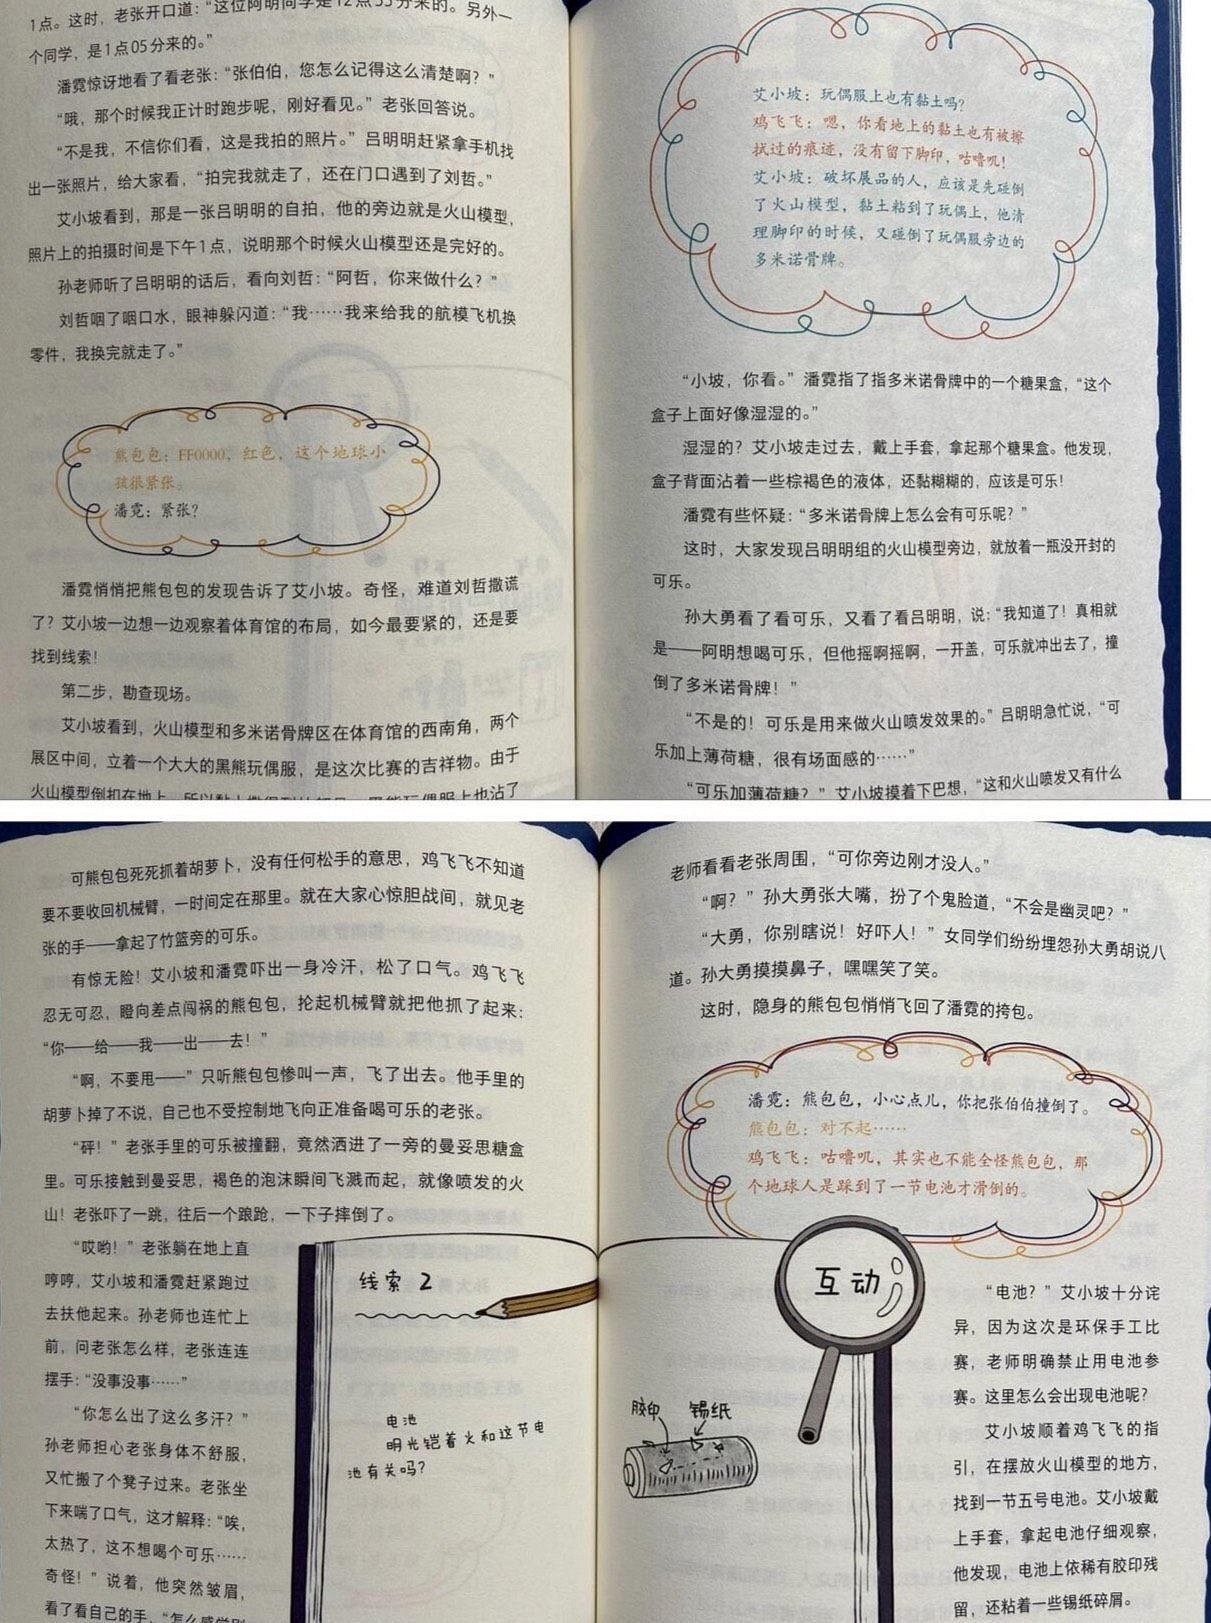 1点。这时，老张开口道：“这位阿明同学是12点55分来的。另外一
个同学，是1点05分来的。”
潘霓惊讶地看了看老张：“张伯伯，您怎么记得这么清楚啊？”
“哦，那个时候我正计时跑步呢，刚好看见。”老张回答说。
“不是我，不信你们看，这是我拍的照片。”吕明明赶紧拿手机找
出一张照片，给大家看，“拍完我就走了，还在门口遇到了刘哲。”
艾小坡看到，那是一张吕明明的自拍，他的旁边就是火山模型，
照片上的拍摄时间是下午1点，说明那个时候火山模型还是完好的。
孙老师听了吕明明的话后，看向刘哲：“阿哲，你来做什么？”
刘哲咽了咽口水，眼神躲闪道：“我……我来给我的航模飞机换
零件，我换完就走了。”
熊包包：FF0000，红色，这个地球小
孩很紧张。
潘霓：紧张？
潘霓悄悄把熊包包的发现告诉了艾小坡。奇怪，难道刘哲撒谎
了？艾小坡一边想一边观察着体育馆的布局，如今最要紧的，还是要
找到线索！
第二步，勘查现场。
艾小坡看到，火山模型和多米诺骨牌区在体育馆的西南角，两个
展区中间，立着一个大大的黑熊玩偶服，是这次比赛的吉祥物。由于
火山模型倒扣在地上，所以黏土撒得到处都是，黑熊玩偶服上也沾了
艾小坡：玩偶服上也有黏土吗？
鸡飞飞：嗯，你看地上的黏土也有被擦
拭过的痕迹，没有留下脚印，咕噜叽！
艾小坡：破坏展品的人，应该是先碰倒
了火山模型，黏土粘到了玩偶上，他清
理脚印的时候，又碰倒了玩偶服旁边的
多米诺骨牌。
“小坡，你看。”潘霓指了指多米诺骨牌中的一个糖果盒，“这个
盒子上面好像湿湿的。”
湿湿的？艾小坡走过去，戴上手套，拿起那个糖果盒。他发现，
盒子背面沾着一些棕褐色的液体，还黏糊糊的，应该是可乐！
潘霓有些怀疑：“多米诺骨牌上怎么会有可乐呢？”
这时，大家发现吕明明组的火山模型旁边，就放着一瓶没开封的
可乐。
孙大勇看了看可乐，又看了看吕明明，说：“我知道了！真相就
是——阿明想喝可乐，但他摇啊摇啊，一开盖，可乐就冲出去了，撞
倒了多米诺骨牌！”
“不是的！可乐是用来做火山喷发效果的。”吕明明急忙说，“可
乐加上薄荷糖，很有场面感的……”
“可乐加薄荷糖？”艾小坡摸着下巴想，“这和火山喷发又有什么
可熊包包死死抓着胡萝卜，没有任何松手的意思，鸡飞飞不知道
要不要收回机械臂，一时间定在那里。就在大家心惊胆战间，就见老
张的手——拿起了竹篮旁的可乐。
有惊无险！艾小坡和潘霓吓出一身冷汗，松了口气。鸡飞飞
忍无可忍，瞪向差点闯祸的熊包包，抡起机械臂就把他抓了起来：
“你——给——我——出——去！”
“啊，不要甩——”只听熊包包惨叫一声，飞了出去。他手里的
胡萝卜掉了不说，自己也不受控制地飞向正准备喝可乐的老张。
“砰！”老张手里的可乐被撞翻，竟然洒进了一旁的曼妥思糖盒
里。可乐接触到曼妥思，褐色的泡沫瞬间飞溅而起，就像喷发的火
山！老张吓了一跳，往后一个踉跄，一下子摔倒了。
“哎哟！”老张躺在地上直
哼哼，艾小坡和潘霓赶紧跑过
去扶他起来。孙老师也连忙上
前，问老张怎么样，老张连连
摆手：“没事没事……”
“你怎么出了这么多汗？”
孙老师担心老张身体不舒服，
又忙搬了个凳子过来。老张坐
下来喘了口气，这才解释：“唉，
太热了，这不想喝个可乐……
奇怪！”说着，他突然皱眉，
看了看自己的手，“怎么感觉刚
线索2
电池
明光铠着火和这节电
池有关吗？
老师看看老张周围，“可你旁边刚才没人。”
“啊？”孙大勇张大嘴，扮了个鬼脸道，“不会是幽灵吧？”
“大勇，你别瞎说！好吓人！”女同学们纷纷埋怨孙大勇胡说八
道。孙大勇摸摸鼻子，嘿嘿笑了笑。
这时，隐身的熊包包悄悄飞回了潘霓的挎包。
潘霓：熊包包，小心点儿，你把张伯伯撞倒了。
熊包包：对不起……
鸡飞飞：咕噜叽，其实也不能全怪熊包包，那
个地球人是踩到了一节电池才滑倒的。
互动
胶印 锡纸
“电池？”艾小坡十分诧
异，因为这次是环保手工比
赛，老师明确禁止用电池参
赛。这里怎么会出现电池呢？
艾小坡顺着鸡飞飞的指
引，在摆放火山模型的地方，
找到一节五号电池。艾小坡戴
上手套，拿起电池仔细观察，
他发现，电池上依稀有胶印残
留，还粘着一些锡纸碎屑。